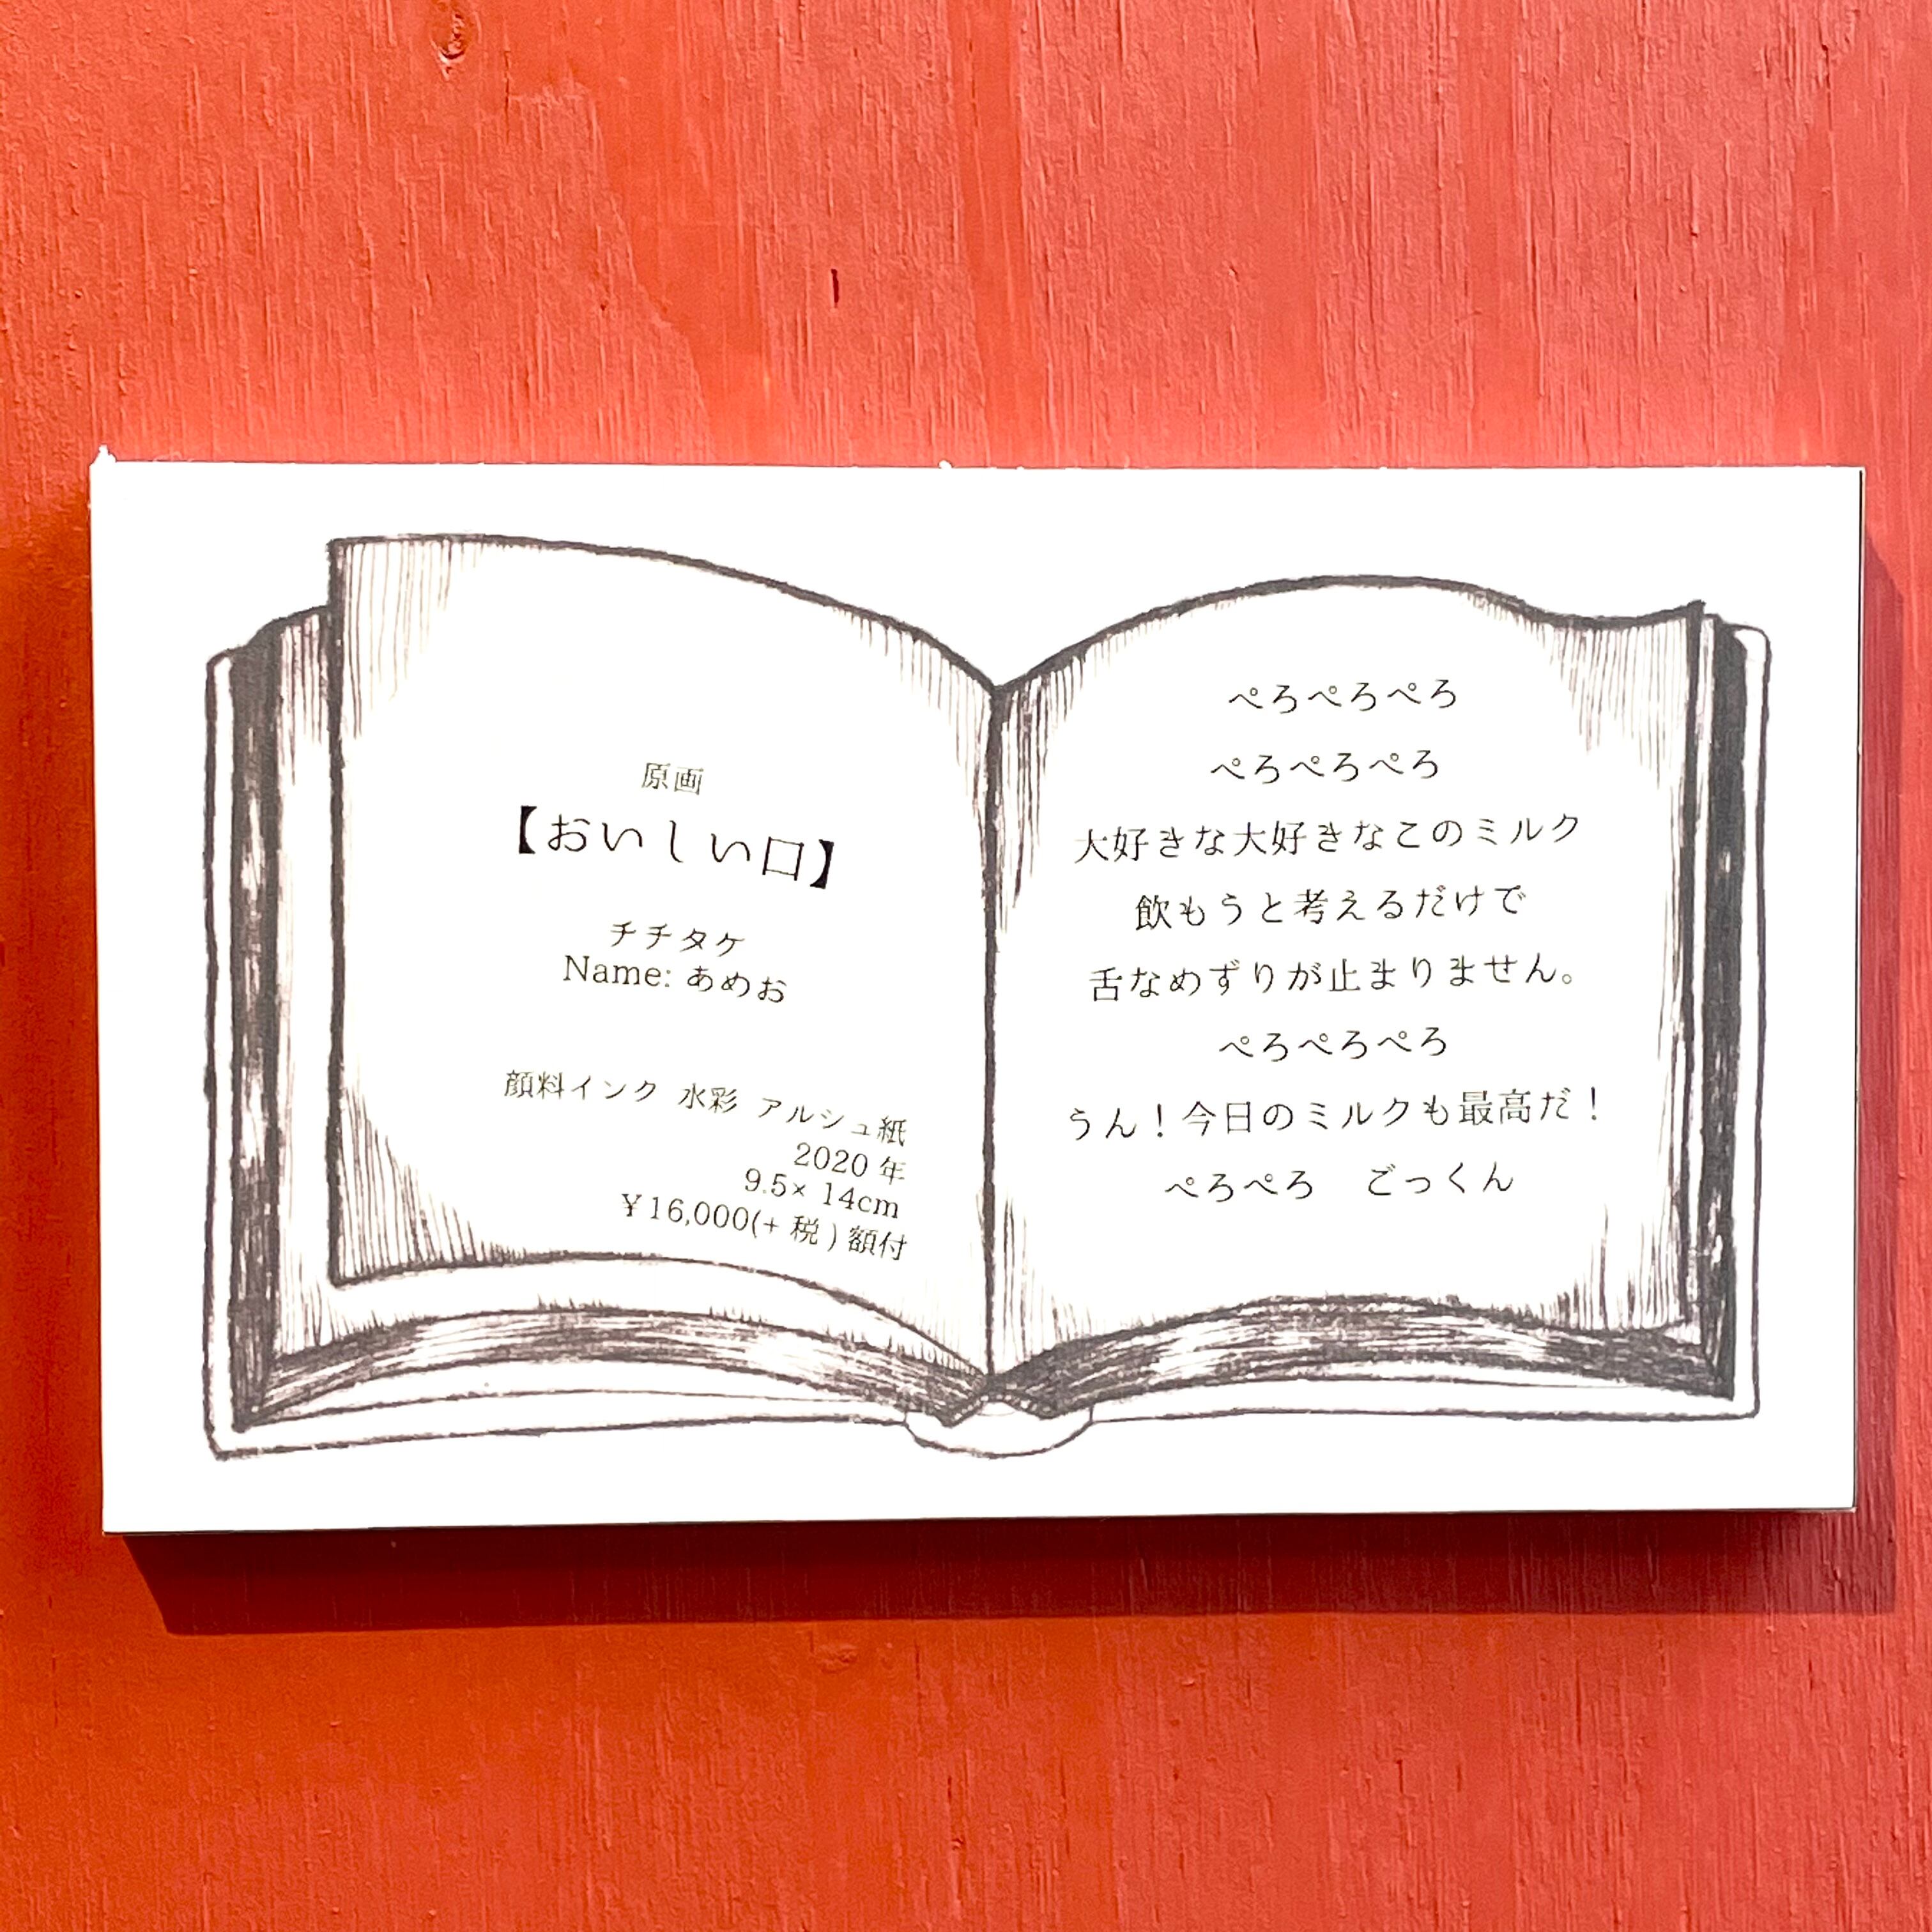 原画
【おいしい口】
チチタケ
Name: あめお
顔料インク 水彩 アルシュ紙
2020 年
9.5× 14cm
￥16,000(+ 税 ) 額付
ぺろぺろぺろ
ぺろぺろぺろ
大好きな大好きなこのミルク
飲もうと考えるだけで
舌なめずりが止まりません。
ぺろぺろぺろ
うん！今日のミルクも最高だ！
ぺろぺろ　ごっくん